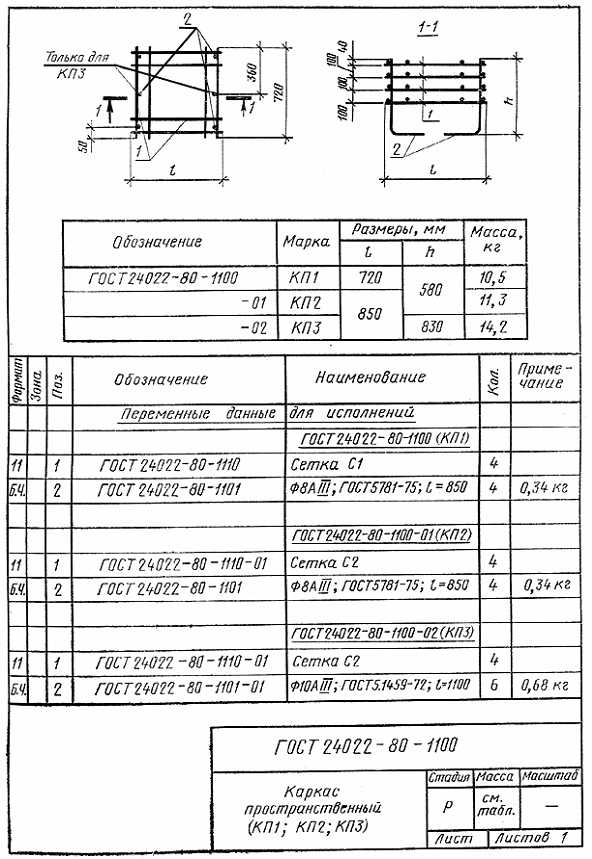 2
1-1
Только для
КП3
1
1
360
720
50
1
l
100 40
100
100
1
2
h
l
Обозначение Марка Размеры, мм Масса, кг
l h
ГОСТ 24022-80-1100 КП1 720 580 10,5
-01 КП2 850 11,3
-02 КП3 830 14,2
Формат Зона Поз. Обозначение Наименование Кол. Приме-
чание
Переменные данные для исполнений
ГОСТ 24022-80-1100 (КП1)
11 1 ГОСТ 24022-80-1110 Сетка С1 4
Б.Ч. 2 ГОСТ 24022-80-1101 Ф8АIII; ГОСТ5781-75; l=850 4 0,34 кг
ГОСТ24022-80-1100-01(КП2)
11 1 ГОСТ 24022-80-1110-01 Сетка С2 4
Б.Ч. 2 ГОСТ 24022-80-1101 Ф8АIII; ГОСТ5781-75; l=850 4 0,34 кг
ГОСТ24022-80-1100-02(КП3)
11 1 ГОСТ 24022-80-1110-01 Сетка С2 4
Б.Ч. 2 ГОСТ 24022-80-1101-01 Ф10АIII; ГОСТ5.1459-72; l=1100 6 0,68 кг
ГОСТ 24022-80-1100
Каркас
пространственный
(КП1; КП2; КП3)
Стадия Масса Масштаб
Р см.
табл. —
Лист Листов 1